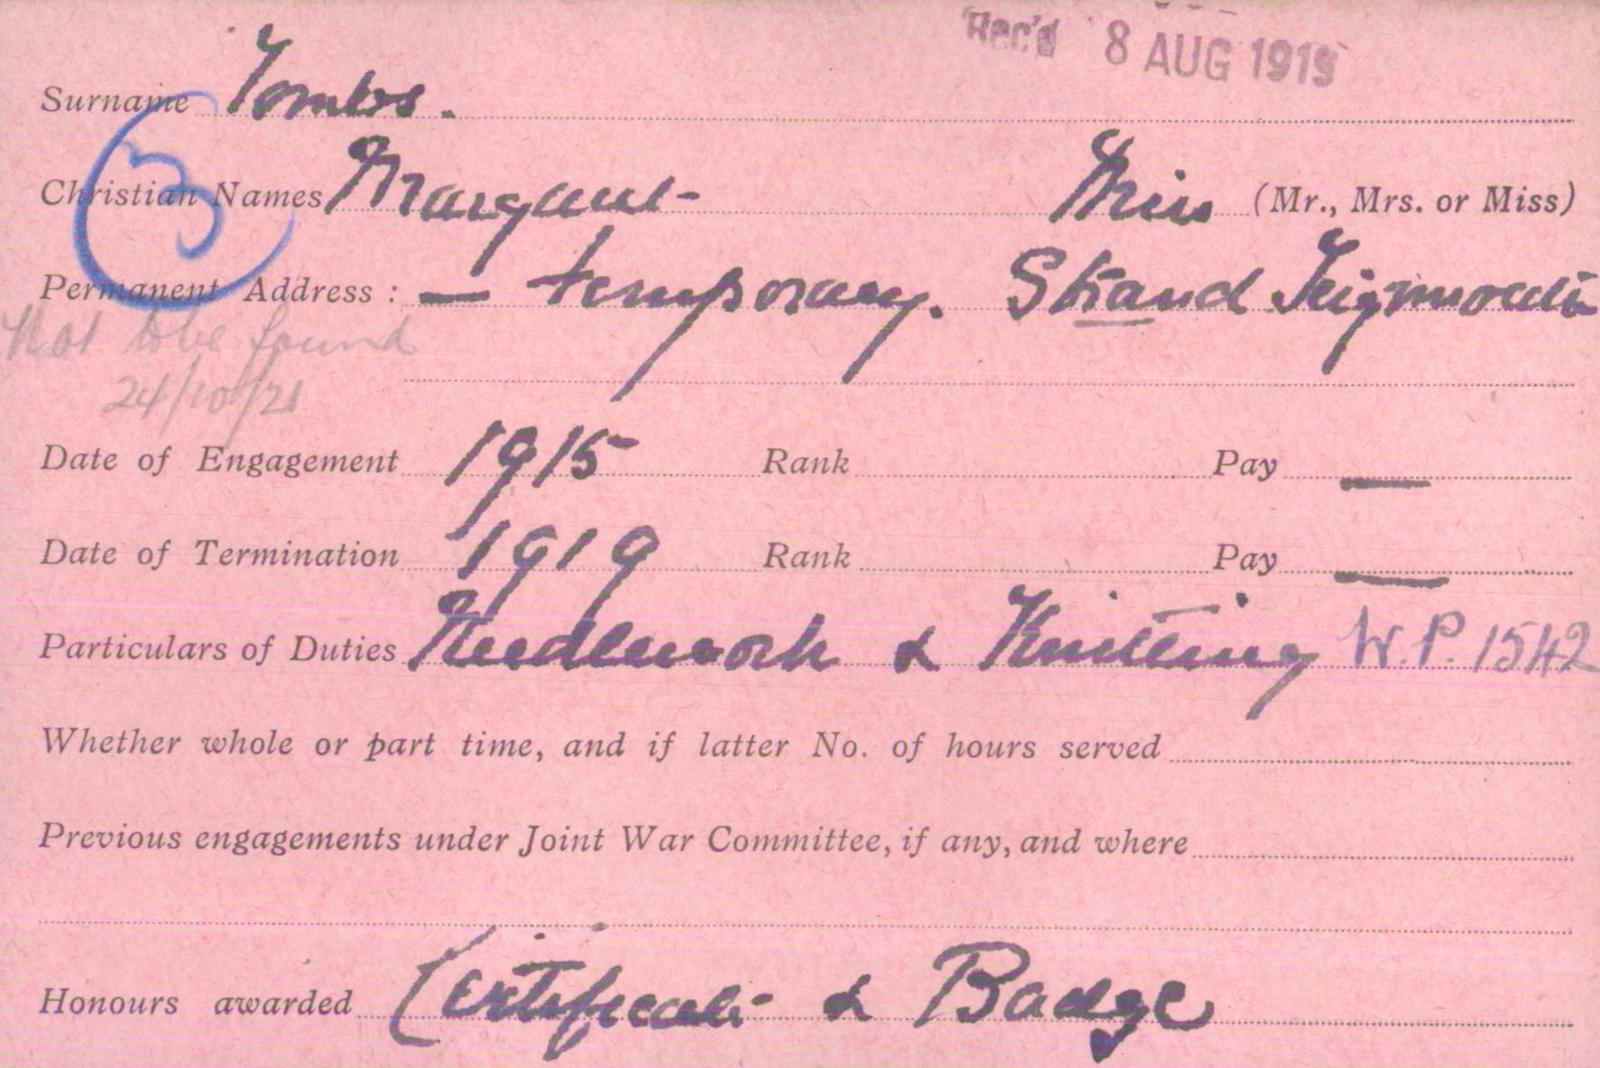 Rec'd 8 AUG 1919
Surname Tombs.
Christian Names Margaret Miss (Mr., Mrs. or Miss)
3
Permanent Address : — temporary. Strand Teignmouth
Not to be found
24/10/21
Date of Engagement 1915 Rank Pay —
Date of Termination 1919 Rank Pay —
Particulars of Duties Needlework & Knitting W.P. 1542
Whether whole or part time, and if latter No. of hours served
Previous engagements under Joint War Committee, if any, and where
Honours awarded Certificate & Badge